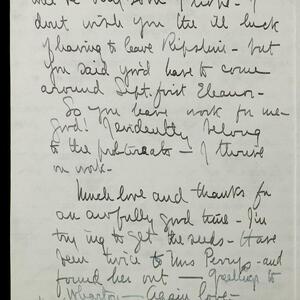 don't wish you the ill luck
of having to leave Ripshin - but
you said you'd have to come
around Sept. first Eleanor -
So you leave work for me -
good! I evidently belong
to the proletreats - I thrive
on work -
Much love and thanks for
an awfully good time - I'm
trying to get the seeds - Have
been twice to Mrs Perrys - and
found her out - greetings to
Wharton - Again love -